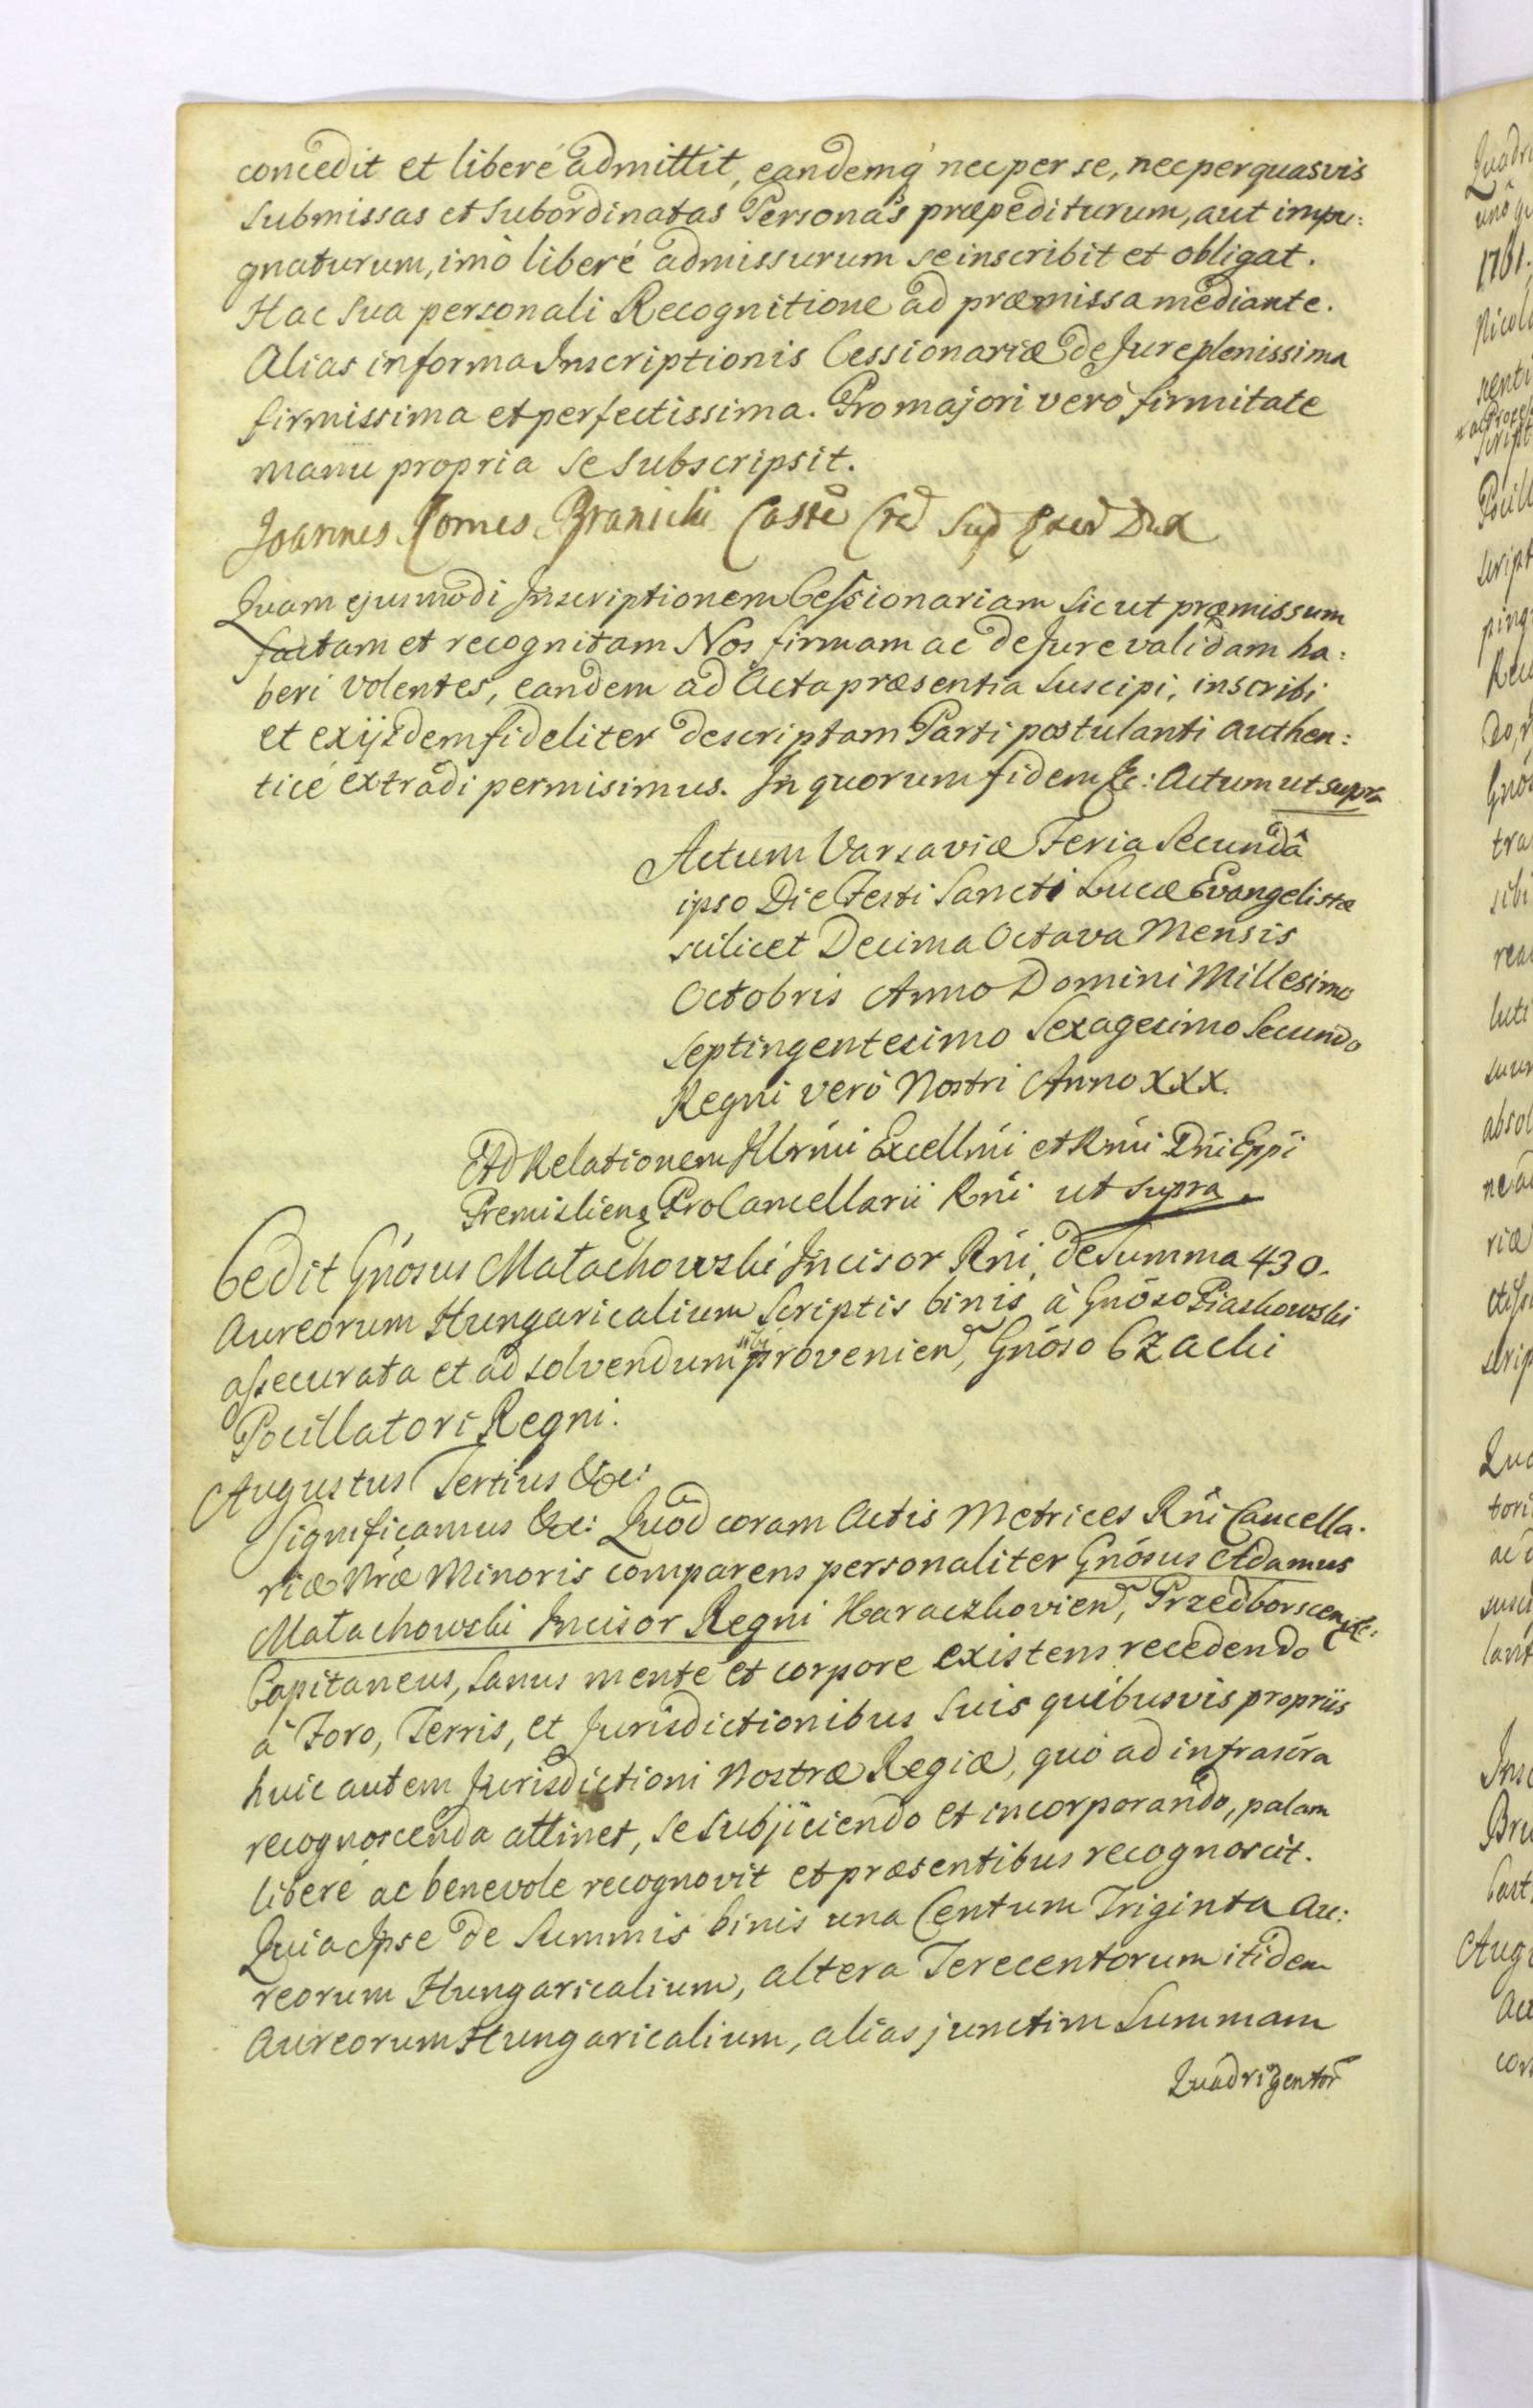 concedit et liberé admittit, eandemq́ nec per se, nec per quasvis
submissas et subordinatas Personas præpediturum, aut impu:
gnaturum, imò liberé admissurum se inscribit et obligat.
Hac sua personali Recognitione ad præmissa mediante.
Alias in forma Inscriptionis Cessionariæ de Jure plenissima
firmissima et perfectissima. Pro majori verò firmitate
manu propria se subscripsit.
Joannes Comes Branicki
Quam ejusmodi Inscriptionem Cessionariam sic ut præmissum
factam et recognitam Nos firmam ac de Jure validam ha:
beri volentes, eandem ad Acta præsentia suscipi, inscribi
et ex ijsdem fideliter descriptam Parti postulanti authen:
ticé extradi permisimus. In quorum fidem &c: Actum ut supra
Actum Varsaviæ Feria Secundâ
ipso Die Festi Sancti Lucæ Evangelistæ
scilicet Decima Octava Mensis
Octobris Anno Domini Millesimo
Septingentesimo Sexagesimo Secundo
Regni verò Nostri Anno XXX.
Ad Relationem Illrmi Excellmi et Rmi Dni Eppi
Premislien ProCancellarii Rni ut supra
Cedit Gnosus Małachowski Incisor Rni, de Summa 430.
Aureorum Hungaricalium scriptis binis à Gnoso Piaskowski
assecurata et ad solvendum sibi provenien, Gnoso Czacki
Pocillatori Regni.
Augustus Tertius &c:
Significamus &c: Quod coram Actis Metrices Rni Cancella.
riæ Nræ Minoris comparens personaliter Gnosus Adamus
Małachowski Incisor Regni Haraczkovien, Przedborscen &c:
Capitaneus, sanus mente et corpore existens recedendo
à Foro, Terris, et Jurisdictionibus suis quibusvis propriis
huic autem Jurisdictioni Nostræ Regiæ, quo ad infrascra
recognoscenda attinet, se subjiciendo et incorporando, palam
liberé ac benevole recognovit et præsentibus recognoscit.
Quia Ipse de Summis binis una Centum Triginta Au:
reorum Hungaricalium, altera Terecentorum itidem
Aureorum Hungaricalium, alias junctim Summam
Quadrigentor